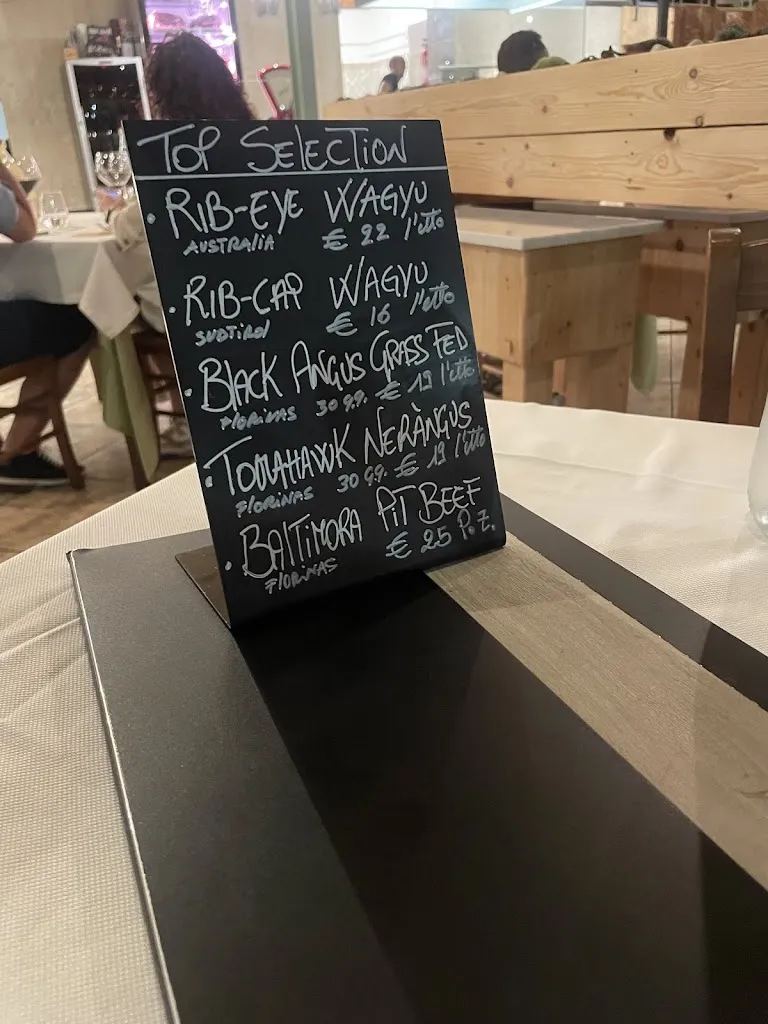 TOP SELECTION
• RIB-EYE WAGYU
AUSTRALIA € 22 l'etto
• RIB-CAP WAGYU
SUDTIROL € 16 l'etto
• BLACK ANGUS GRASS FED
FLORINAS 30 gg. € 19 l'etto
• TOMAHAWK NERÀNGUS
FLORINAS 30 gg. € 19 l'etto
• BALTIMORA PIT BEEF
FLORINAS € 25 P.Z.